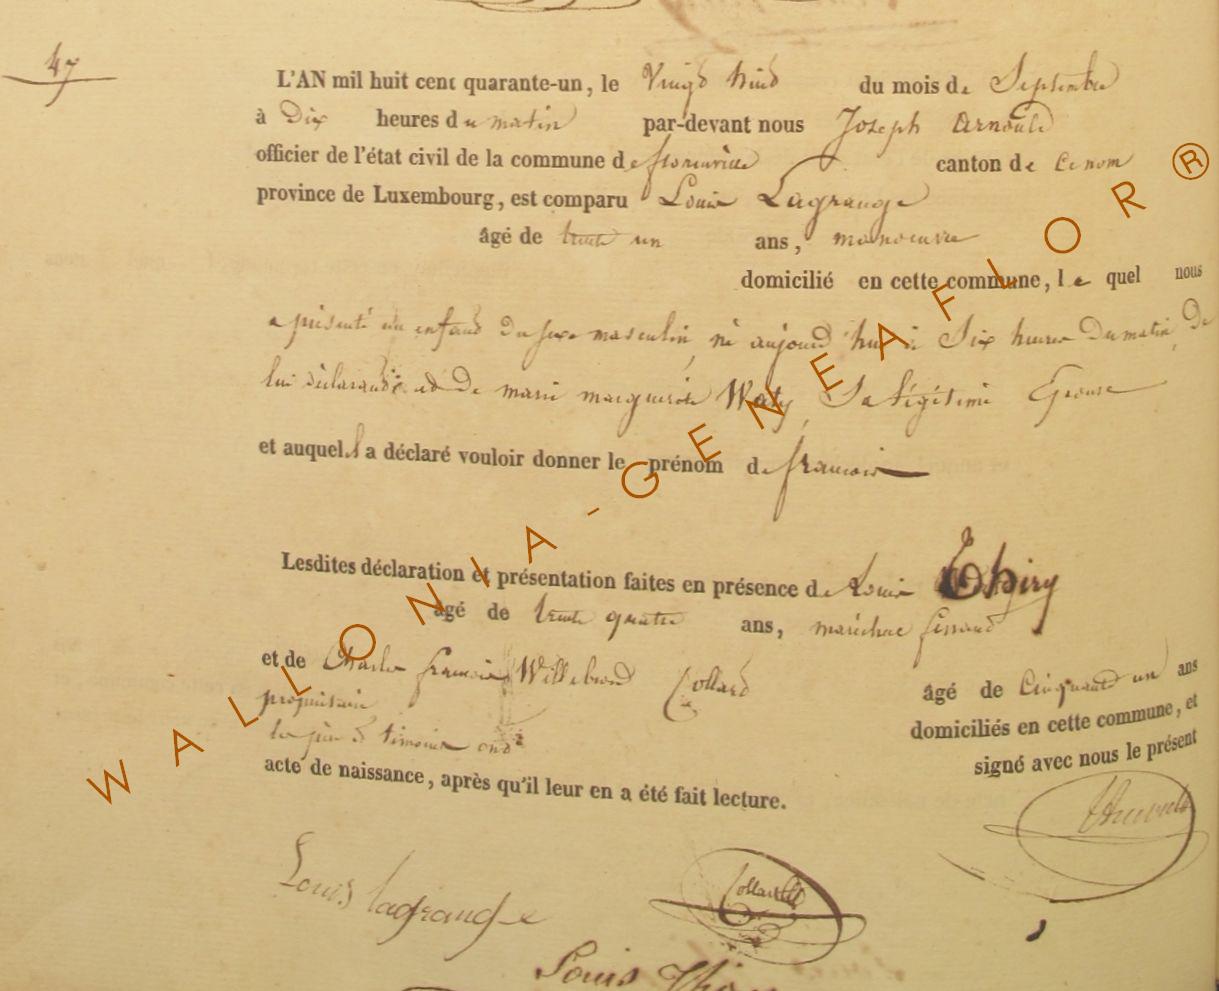 47
L'AN mil huit cent quarante-un, le Vingt huit du mois de Septembre
à Dix heures du matin par-devant nous Joseph Arnould
officier de l'état civil de la commune de florenville canton de ce nom
province de Luxembourg, est comparu Louis Lagrange
âgé de trente un ans, manoeuvre
domicilié en cette commune, le quel nous
a présenté un enfant du sexe masculin, né aujourd'hui à Six heures du matin, de
lui déclarant et de marie marguerite Waty, Sa légitime Epouse
et auquel il a déclaré vouloir donner le prénom de francois
Lesdites déclaration et présentation faites en présence de Louis Thiry
âgé de trente quatre ans, maréchal ferrand
et de Charles francois Willebrord Collard
propriétaire âgé de Cinquante un ans
domiciliés en cette commune, et
les père & témoins ont signé avec nous le présent
acte de naissance, après qu'il leur en a été fait lecture.
Louis lagrange
Collard
Louis
WALLONIA-GENEAFLOR®